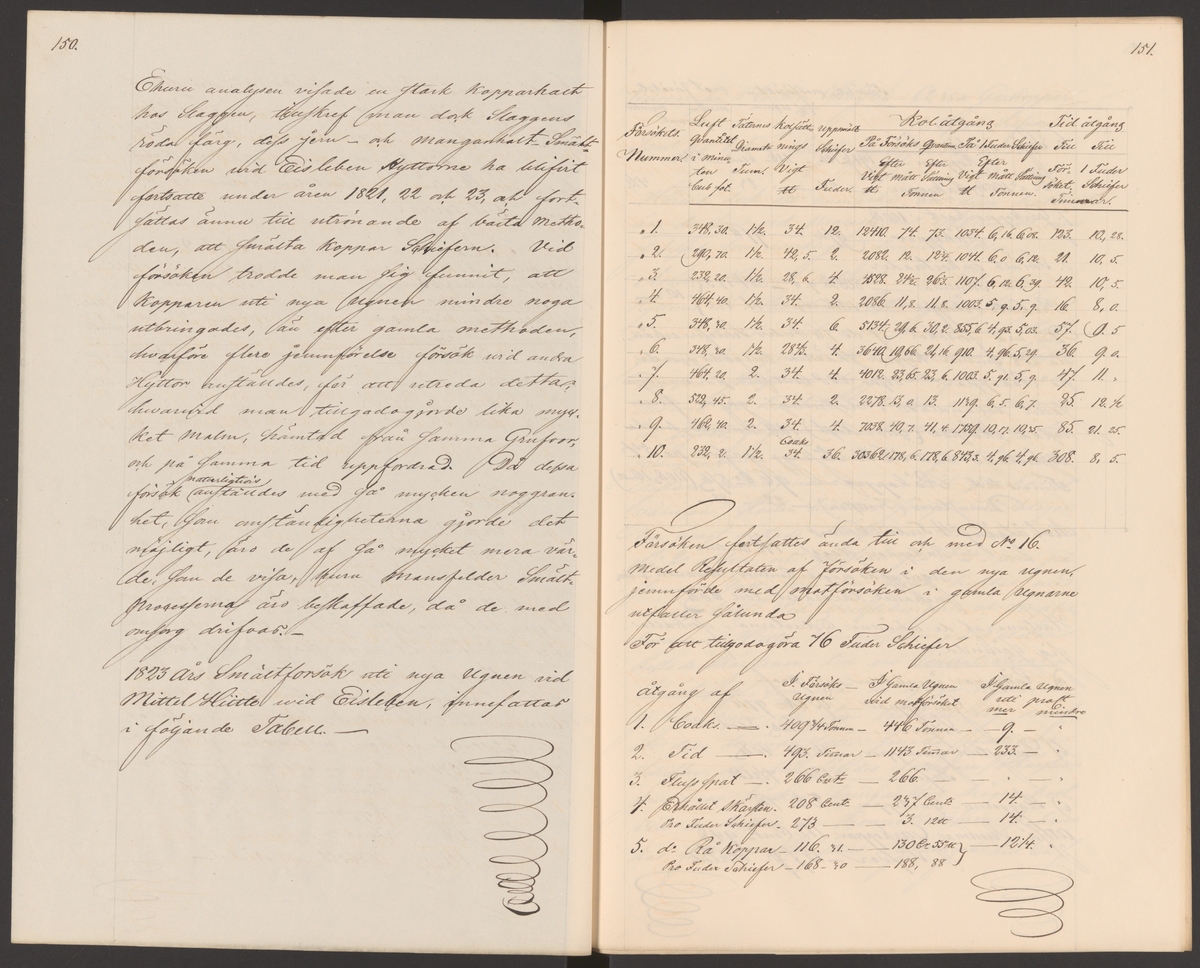 150.
Ehuru analysen visade en stark Kopparhalt
hos Slaggen, tillskref man dock Slaggens
röda färg, dess jern- och manganhalt. Smält-
försöken wid Eisleben Hyttorne ha blifvit
fortsatte under åren 1821, 22 och 23, och fort-
sättas ännu till utrönande af bästa metho-
den, att smälta Koppar Schiefern. Vid
försöken trodde man sig funnit, att
Kopparen uti nya Ugnen mindre noga
utbringades, än efter gamla methoden,
hvarföre flere jemnförelse försök wid andra
Hyttor anställdes, för att utreda detta,
hwarvid man tillgodogjorde lika myc-
ket Malm, hämtad från samma Grufvor,
och på samma tid uppfordrad. Då dessa
försök naturligtvis anställdes med så mycken noggran-
het, som omständigheterna gjorde det
möjligt, äro de af så mycket mera vär-
de, som de visa, huru Mansfelder Smält-
Processerna äro beskaffade, då de med
omsorg drifvas.—
1823 Års Smältförsök uti nya Ugnen vid
Mittel Hütte wid Eisleben, innefattas
i följande Tabell.—
151.
Försöks Nummer. Luft Quantitet i minuten Cub fot. Tätornes Diameter Tum. Kolsättnings Vigt ℔ Uppsmält Schifer Fuder. Kolåtgång Tid åtgång
På Försöks Quantum På 1 Fuder Schifer Till Försöket. Till 1 Fuder Schiefer
Efter Vigt ℔ Mått Efter Sättning Tonnen Efter Vigt ℔ Mått Sättning Tonnen. Timmar.
" 1. 348,30. 1½. 34. 12. 12410. 74. 73. 1034. 6,16. 6,08. 123. 10,28.
" 2. 290,70. 1½. 42,5. 2. 2082. 12. 12¼. 1041. 6,0 6,12. 21. 10,5.
" 3. 232,20. 1½. 28,6. 4. 4528. 24½. 26½. 1107. 6,12. 6,39. 42. 10,5.
" 4. 464,40. 1½. 34. 2. 2086. 11,8. 11,8. 1003. 5,9. 5,9. 16. 8,0.
" 5. 348,30. 1½. 34. 6. 5134. 29,6. 30,2. 855,6. 4,93. 5,03. 57. 9.5
" 6. 348,30. 1½. 28⅔. 4. 3640. 19,66. 21,16. 910. 4,96. 5,29. 36. 9.0.
" 7. 464,20. 2. 34. 4. 4012. 23,65. 23,6. 1003. 5,91. 5,9. 47. 11.
" 8. 522,45. 2. 34. 2. 2278. 13,0. 13. 1139. 6,5. 6,7. 25. 12.½
" 9. 462,40. 2. 34. 4. 7038. 40,7. 41,4. 1759. 10,17. 10,35. 85. 21.25.
" 10. 232,2. 1½. Coaks 34. 36. 30362. 178,6. 178,6. 843,3. 4,96. 4,96. 308. 8,5.
Försöken fortsattes ända till och med No 16.
Medel Resultaten af Försöken i den nya Ugnen,
jemnförde med motförsöken i gamla Ugnarne
utfaller sålunda
För att tillgodogöra 76 Fuder Schiefer
åtgång af I Försöks Ugnen — I Gamla Ugnen vid motförsöket I Gamla Ugnen uti procent mer mindre
1. Coaks — 409¼ Tonnen — 446 Tonnen — 9. — "
2. Tid — 493. Timar — 1143 Timar — 233. — "
3. Flusspat — 266 Cent — 266. — " — "
4. Erhållit Skärsten. 208 Cent — 237 Cent — 14. — "
Pro Fuder Schiefer. 273 — 3. 12℔ — 14. — "
5. do Rå Koppar — 116. 31. — 130 Ce 55℔ — 12¼. "
Pro Fuder Schiefer — 168. 30 — 188, 88